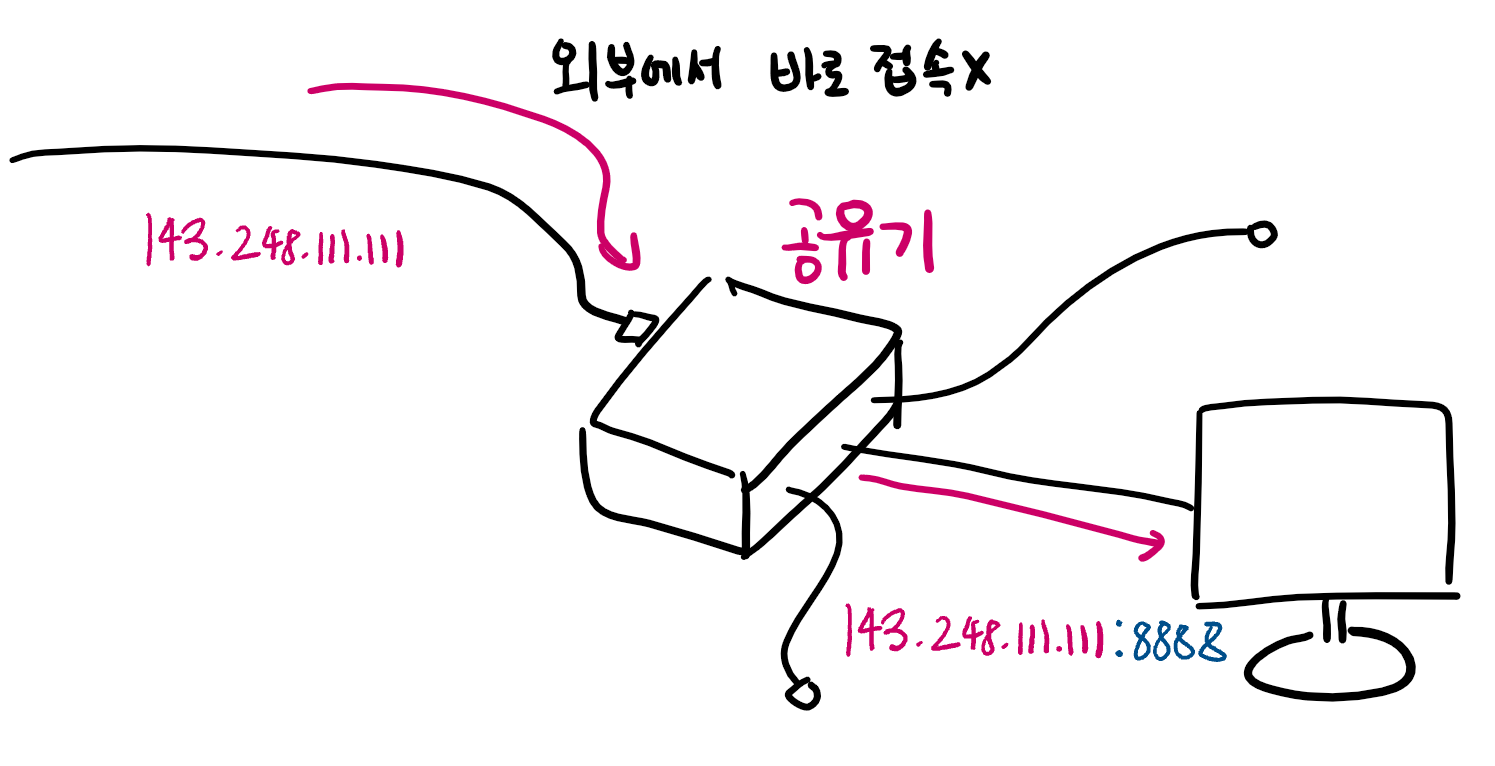 외부에서 바로 접속X
143.248.111.111
공유기
143.248.111.111:8888